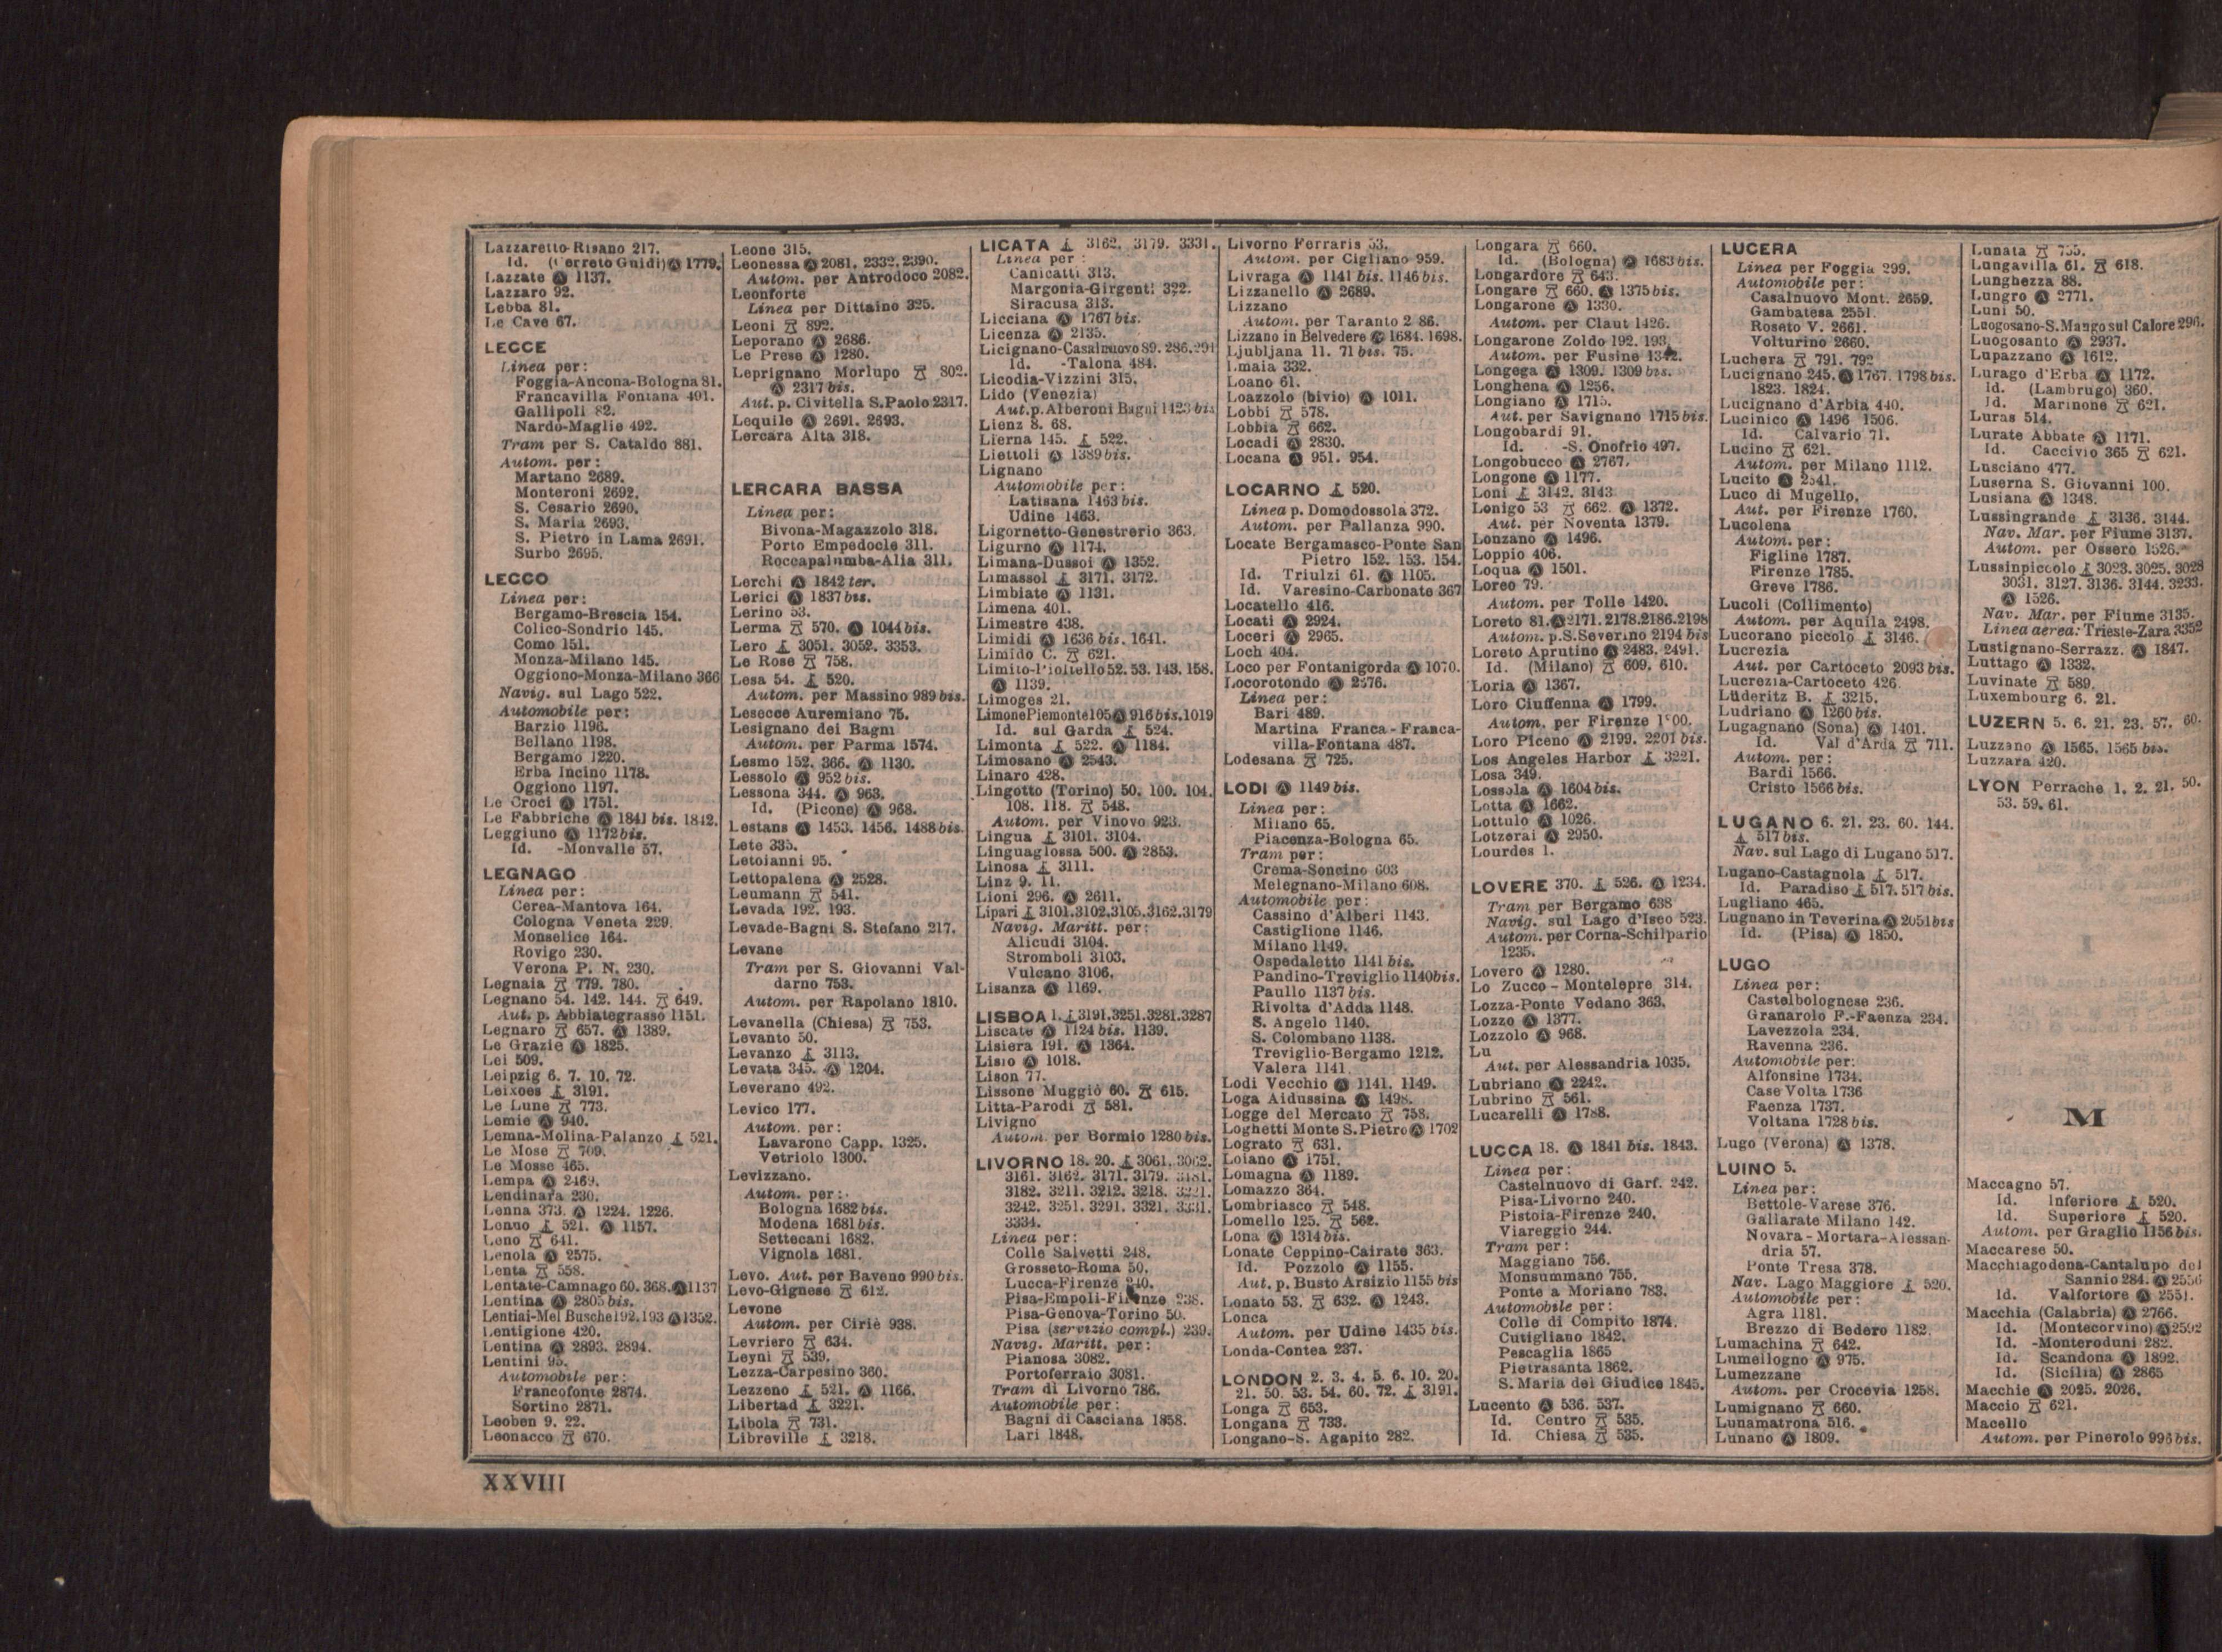 Lazzaretto-Risano 217.
Id. (Cerreto Guidi) Ⓐ 1779.
Lazzate Ⓐ 1137.
Lazzaro 92.
Lebba 81.
Le Cave 67.
LECCE
Linea per:
Foggia-Ancona-Bologna 81.
Francavilla Fontana 491.
Gallipoli 82.
Nardò-Maglie 492.
Tram per S. Cataldo 881.
Autom. per:
Martano 2689.
Monteroni 2692.
S. Cesario 2690.
S. Maria 2693.
S. Pietro in Lama 2691.
Surbo 2695.
LECCO
Linea per:
Bergamo-Brescia 154.
Colico-Sondrio 145.
Como 151.
Monza-Milano 145.
Oggiono-Monza-Milano 366
Navig. sul Lago 522.
Automobile per:
Barzio 1196.
Bellano 1198.
Bergamo 1220.
Erba Incino 1178.
Oggiono 1197.
Le Croci Ⓐ 1751.
Le Fabbriche Ⓐ 1841 bis. 1842.
Leggiuno Ⓐ 1172 bis.
Id. -Monvalle 57.
LEGNAGO
Linea per:
Cerea-Mantova 164.
Cologna Veneta 229.
Monselice 164.
Rovigo 230.
Verona P. N. 230.
Legnaia 779. 780.
Legnano 54. 142. 144. 649.
Aut. p. Abbiategrasso 1151.
Legnaro 657. Ⓐ 1389.
Le Grazie Ⓐ 1825.
Lei 509.
Leipzig 6. 7. 10. 72.
Leixoes 3191.
Le Lune 773.
Lemie Ⓐ 940.
Lemna-Molina-Palanzo 521.
Le Mose 709.
Le Mosse 465.
Lempa Ⓐ 2469.
Lendinara 230.
Lenna 373. Ⓐ 1224. 1226.
Lenno 521. Ⓐ 1157.
Leno 641.
Lenola Ⓐ 2575.
Lenta 558.
Lentate-Camnago 60. 368. Ⓐ 1137
Lentina Ⓐ 2805 bis.
Lentiai-Mel Busche 192.193 Ⓐ 1352.
Lentigione 420.
Lentina Ⓐ 2893. 2894.
Lentini 95.
Automobile per:
Francofonte 2874.
Sortino 2871.
Leoben 9. 22.
Leonacco 670.
Leone 315.
Leonessa Ⓐ 2081. 2332. 2390.
Autom. per Antrodoco 2082.
Leonforte
Linea per Dittaino 325.
Leoni 892.
Leporano Ⓐ 2686.
Le Prese Ⓐ 1280.
Leprignano Morlupo 802.
Ⓐ 2317 bis.
Aut. p. Civitella S. Paolo 2317.
Lequile Ⓐ 2691. 2693.
Lercara Alta 318.
LERCARA BASSA
Linea per:
Bivona-Magazzolo 318.
Porto Empedocle 311.
Roccapalumba-Alia 311.
Lerchi Ⓐ 1842 ter.
Lerici Ⓐ 1837 bis.
Lerino 53.
Lerma 570. Ⓐ 1044 bis.
Lero 3051. 3052. 3353.
Le Rose 758.
Lesa 54. 520.
Autom. per Massino 989 bis.
Lesecce Auremiano 75.
Lesignano dei Bagni
Autom. per Parma 1574.
Lesmo 152. 366. Ⓐ 1130.
Lessolo Ⓐ 952 bis.
Lessona 344. Ⓐ 963.
Id. (Picone) Ⓐ 968.
Lestans Ⓐ 1453. 1456. 1488 bis.
Lete 335.
Letoianni 95.
Lettopalena Ⓐ 2528.
Leumann 541.
Levada 192. 193.
Levade-Bagni S. Stefano 217.
Levane
Tram per S. Giovanni Val-
darno 753.
Autom. per Rapolano 1810.
Levanella (Chiesa) 753.
Levanto 50.
Levanzo 3113.
Levata 345. Ⓐ 1204.
Leverano 492.
Levico 177.
Autom. per:
Lavarone Capp. 1325.
Vetriolo 1300.
Levizzano.
Autom. per:
Bologna 1682 bis.
Modena 1681 bis.
Settecani 1682.
Vignola 1681.
Levo. Aut. per Baveno 990 bis.
Levo-Gignese 612.
Levone
Autom. per Ciriè 938.
Levriero 634.
Leyni 539.
Lezza-Carpesino 360.
Lezzeno 521. Ⓐ 1166.
Libertad 3221.
Libola 731.
Libreville 3218.
LICATA 3162. 3179. 3331.
Linea per:
Canicatti 313.
Margonia-Girgenti 322.
Siracusa 313.
Licciana Ⓐ 1767 bis.
Licenza Ⓐ 2135.
Licignano-Casalnuovo 89. 286. 291
Id. -Talona 484.
Licodia-Vizzini 315.
Lido (Venezia)
Aut. p. Alberoni Bagni 1423 bis
Lienz 8. 68.
Lierna 145. 522.
Liettoli Ⓐ 1389 bis.
Lignano
Automobile per:
Latisana 1463 bis.
Udine 1463.
Ligornetto-Genestrerio 363.
Ligurno Ⓐ 1174.
Limana-Dussoi Ⓐ 1352.
Limassol 3171. 3172.
Limbiate Ⓐ 1131.
Limena 401.
Limestre 438.
Limidi Ⓐ 1636 bis. 1641.
Limido C. 621.
Limito-Pioltello 52. 53. 143. 158.
Ⓐ 1139.
Limoges 21.
Limone Piemonte 105 Ⓐ 916 bis. 1019
Id. sul Garda 524.
Limonta 522. Ⓐ 1184.
Limosano Ⓐ 2543.
Linaro 428.
Lingotto (Torino) 50. 100. 104.
108. 118. 548.
Autom. per Vinovo 923.
Lingua 3101. 3104.
Linguaglossa 500. Ⓐ 2853.
Linosa 3111.
Linz 9. 11.
Lioni 296. Ⓐ 2611.
Lipari 3101.3102.3105.3162.3179
Navig. Maritt. per:
Alicudi 3104.
Stromboli 3103.
Vulcano 3106.
Lisanza Ⓐ 1169.
LISBOA 1. 3191.3251.3281.3287
Liscate Ⓐ 1124 bis. 1139.
Lisiera 191. Ⓐ 1364.
Lisio Ⓐ 1018.
Lison 77.
Lissone Muggiò 60. 615.
Litta-Parodi 581.
Livigno
Autom. per Bormio 1280 bis.
LIVORNO 18. 20. 3061. 3062.
3161. 3162. 3171. 3179. 3181.
3182. 3211. 3212. 3218. 3221.
3242. 3251. 3291. 3321. 3331.
3334.
Linea per:
Colle Salvetti 248.
Grosseto-Roma 50.
Lucca-Firenze 240.
Pisa-Empoli-Firenze 238.
Pisa-Genova-Torino 50.
Pisa (servizio compl.) 239.
Navig. Maritt. per:
Pianosa 3082.
Portoferraio 3081.
Tram di Livorno 786.
Automobile per:
Bagni di Casciana 1858.
Lari 1848.
Livorno Ferraris 53.
Autom. per Cigliano 959.
Livraga Ⓐ 1141 bis. 1146 bis.
Lizzanello Ⓐ 2689.
Lizzano
Autom. per Taranto 2 86.
Lizzano in Belvedere Ⓐ 1684. 1698.
Ljubljana 11. 71 bis. 75.
Lmaia 332.
Loano 61.
Loazzolo (bivio) Ⓐ 1011.
Lobbi 578.
Lobbia 662.
Locadi Ⓐ 2830.
Locana Ⓐ 951. 954.
LOCARNO 520.
Linea p. Domodossola 372.
Autom. per Pallanza 990.
Locate Bergamasco-Ponte San
Pietro 152. 153. 154.
Id. Triulzi 61. Ⓐ 1105.
Id. Varesino-Carbonate 367
Locatello 416.
Locati Ⓐ 2924.
Loceri Ⓐ 2965.
Loch 404.
Loco per Fontanigorda Ⓐ 1070.
Locorotondo Ⓐ 2676.
Linea per:
Bari 489.
Martina Franca-Franca-
villa-Fontana 487.
Lodesana 725.
LODI Ⓐ 1149 bis.
Linea per:
Milano 65.
Piacenza-Bologna 65.
Tram per:
Crema-Soncino 603
Melegnano-Milano 608.
Automobile per:
Cassino d'Alberi 1143.
Castiglione 1146.
Milano 1149.
Ospedaletto 1141 bis.
Pandino-Treviglio 1140 bis.
Paullo 1137 bis.
Rivolta d'Adda 1148.
S. Angelo 1140.
S. Colombano 1138.
Treviglio-Bergamo 1212.
Valera 1141.
Lodi Vecchio Ⓐ 1141. 1149.
Loga Aidussina Ⓐ 1498.
Logge del Mercato 758.
Loghetti Monte S. Pietro Ⓐ 1702
Lograto 631.
Loiano Ⓐ 1751.
Lomagna Ⓐ 1189.
Lomazzo 364.
Lombriasco 548.
Lomello 125. 562.
Lona Ⓐ 1314 bis.
Lonate Ceppino-Cairate 363.
Id. Pozzolo Ⓐ 1155.
Aut. p. Busto Arsizio 1155 bis
Lonato 53. 632. Ⓐ 1243.
Lonca
Autom. per Udine 1435 bis.
Londa-Contea 237.
LONDON 2. 3. 4. 5. 6. 10. 20.
21. 50. 53. 54. 60. 72. 3191.
Longa 653.
Longana 733.
Longano-S. Agapito 282.
Longara 660.
Id. (Bologna) Ⓐ 1683 bis.
Longardore 643.
Longare 660. Ⓐ 1375 bis.
Longarone Ⓐ 1330.
Autom. per Claut 1426.
Longarone Zoldo 192. 193.
Autom. per Fusine 1342.
Longega Ⓐ 1309. 1309 bis.
Longhena Ⓐ 1256.
Longiano Ⓐ 1715.
Aut. per Savignano 1715 bis.
Longobardi 91.
Id. -S. Onofrio 497.
Longobucco Ⓐ 2767.
Longone Ⓐ 1177.
Loni 3142. 3143
Lonigo 53 662. Ⓐ 1372.
Aut. per Noventa 1379.
Lonzano Ⓐ 1496.
Loppio 406.
Loqua Ⓐ 1501.
Loreo 79.
Autom. per Tolle 1420.
Loreto 81. Ⓐ 2171. 2178.2186.2198
Autom. p. S. Severino 2194 bis
Loreto Aprutino Ⓐ 2483. 2491.
Id. (Milano) 609. 610.
Loria Ⓐ 1367.
Loro Ciuffenna Ⓐ 1799.
Autom. per Firenze
Loro Piceno Ⓐ 2199. 2201 bis.
Los Angeles Harbor 3221.
Losa 349.
Lossola Ⓐ 1604 bis.
Lotta Ⓐ 1662.
Lottulo Ⓐ 1026.
Lotzerai Ⓐ 2950.
Lourdes 1.
LOVERE 370. 526. Ⓐ 1234.
Tram per Bergamo 638
Navig. sul Lago d'Iseo 523.
Autom. per Corna-Schilpario
1235.
Lovero Ⓐ 1280.
Lo Zucco - Montelepre 314.
Lozza-Ponte Vedano 363.
Lozzo Ⓐ 1377.
Lozzolo Ⓐ 968.
Lu
Aut. per Alessandria 1035.
Lubriano Ⓐ 2242.
Lubrino 561.
Lucarelli Ⓐ 1788.
LUCCA 18. Ⓐ 1841 bis. 1843.
Linea per:
Castelnuovo di Garf. 242.
Pisa-Livorno 240.
Pistoia-Firenze 240.
Viareggio 244.
Tram per:
Maggiano 756.
Monsummano 755.
Ponte a Moriano 783.
Automobile per:
Colle di Compito 1874.
Cutigliano 1842.
Pescaglia 1865
Pietrasanta 1862.
S. Maria dei Giudice 1845.
Lucento Ⓐ 536. 537.
Id. Centro 535.
Id. Chiesa 535.
LUCERA
Linea per Foggia 299.
Automobile per:
Casalnuovo Mont. 2659.
Gambatesa 2551.
Roseto V. 2661.
Volturino 2660.
Luchera 791. 792
Lucignano 245. Ⓐ 1767. 1798 bis.
1823. 1824.
Lucignano d'Arbia 440.
Lucinico Ⓐ 1496 1506.
Id. Calvario 71.
Lucino 621.
Autom. per Milano 1112.
Lucito Ⓐ 2541.
Luco di Mugello.
Aut. per Firenze 1760.
Lucolena
Autom. per:
Figline 1787.
Firenze 1785.
Greve 1786.
Lucoli (Collimento)
Autom. per Aquila 2498.
Lucorano piccolo 3146.
Lucrezia
Aut. per Cartoceto 2093 bis.
Lucrezia-Cartoceto 426.
Lüderitz B. 3215.
Ludriano Ⓐ 1260 bis.
Lugagnano (Sona) Ⓐ 1401.
Id. Val d'Arda 711.
Autom. per:
Bardi 1566.
Cristo 1566 bis.
LUGANO 6. 21. 23. 60. 144.
517 bis.
Nav. sul Lago di Lugano 517.
Lugano-Castagnola 517.
Id. Paradiso 517. 517 bis.
Lugliano 465.
Lugnano in Teverina Ⓐ 2051 bis
Id. (Pisa) Ⓐ 1850.
LUGO
Linea per:
Castelbolognese 236.
Granarolo F.-Faenza 234.
Lavezzola 234.
Ravenna 236.
Automobile per:
Alfonsine 1734.
Case Volta 1736
Faenza 1737.
Voltana 1728 bis.
Lugo (Verona) Ⓐ 1378.
LUINO 5.
Linea per:
Bettole-Varese 376.
Gallarate Milano 142.
Novara-Mortara-Alessan-
dria 57.
Ponte Tresa 378.
Nav. Lago Maggiore 520.
Automobile per:
Agra 1181.
Brezzo di Bedero 1182.
Lumachina 642.
Lumellogno Ⓐ 975.
Lumezzane
Autom. per Crocevia 1258.
Lumignano 660.
Lunamatrona 516.
Lunano Ⓐ 1809.
Lunata 755.
Lungavilla 61. 618.
Lunghezza 88.
Lungro Ⓐ 2771.
Luni 50.
Luogosano-S. Mango sul Calore 296.
Luogosanto Ⓐ 2937.
Lupazzano Ⓐ 1612.
Lurago d'Erba Ⓐ 1172.
Id. (Lambrugo) 360.
Id. Marinone 621.
Luras 514.
Lurate Abbate Ⓐ 1171.
Id. Caccivio 365 621.
Lusciano 477.
Luserna S. Giovanni 100.
Lusiana Ⓐ 1348.
Lussingrande 3136. 3144.
Nav. Mar. per Fiume 3137.
Autom. per Ossero 1526.
Lussinpiccolo 3023. 3025. 3028
3031. 3127. 3136. 3144. 3233.
Ⓐ 1526.
Nav. Mar. per Fiume 3135.
Linea aerea: Trieste-Zara 3352
Lustignano-Serrazz. Ⓐ 1847.
Luttago Ⓐ 1332.
Luvinate 589.
Luxembourg 6. 21.
LUZERN 5. 6. 21. 23. 57. 60.
Luzzano Ⓐ 1565. 1565 bis.
Luzzara 420.
LYON Perrache 1. 2. 21. 50.
53. 59. 61.
M
Maccagno 57.
Id. Inferiore 520.
Id. Superiore 520.
Autom. per Graglio 1156 bis.
Maccarese 50.
Macchiagodena-Cantalupo del
Sannio 284. Ⓐ 2556
Id. Valfortore Ⓐ 2551.
Macchia (Calabria) Ⓐ 2766.
Id. (Montecorvino) Ⓐ 2592
Id. -Monteroduni 282.
Id. Scandona Ⓐ 1892.
Id. (Sicilia) Ⓐ 2865
Macchie Ⓐ 2025. 2026.
Maccio 621.
Macello
Autom. per Pinerolo 996 bis.
XXVIII